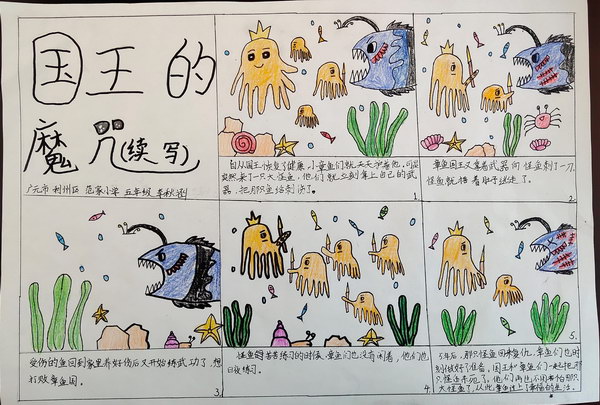 国王的
魔咒(续写)
广元市 利州区 范家小学 五年级 李秋
自从国王恢复了健康,小章鱼们就天天护着他,可是
突然来了一只大怪鱼,他们就立刻拿上自己的武
器,把那只鱼给刺伤了。
1.
章鱼国王又拿着武器向怪鱼刺了一刀,
怪鱼就捂着肚子逃走了。
2.
受伤的鱼回到家里养好伤后又开始练武功了,想
打败章鱼国。
3.
怪鱼苦苦练习的时候,章鱼们也没有闲着,他们也
日夜练习。
4.
5年后,那只怪鱼回来复仇,章鱼们也时
刻做好了准备,国王和章鱼们一起把那
只怪鱼杀死了,他们再也不用害怕那只
大怪鱼了,从此,章鱼过上了幸福的生活。
5.